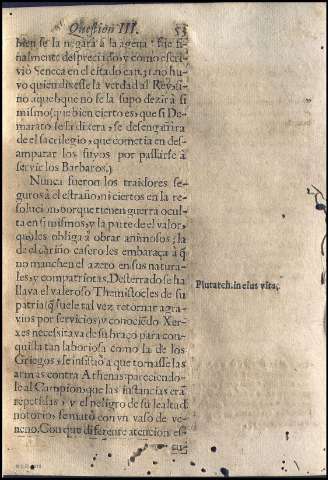 Question III. 53
bien se la negarà à la agena: fue fi-
nalmente despreciado, y como escri-
viò Seneca en el estado
vo quien dixesse la verdad al Rey, si-
no aquel, que no se la supo dezir à si
mismo: que bien cierto es, que si De-
marato se la dixera, se desengañàra
de el sacrilegio, que cometia en des-
amparar los suyos por passarse à
servir los Barbaros.)
Nunca fueron los traidores se-
guros à el estraño, ni ciertos en la re-
solucion, porque tienen guerra ocul-
ta en si mismos, y la parte de el valor,
que les obliga à obrar animosos, la
de el cariño casero les embaraça à q̃
no manchen el azero en sus natura-
les, y compatriotas. Desterrado se ha
llava el valeroso Themistocles de su
patria (q̃ suele tal vez retornar agra-
vios por servicios) y conociẽdo Xer-
xes necessitava de su braço para con-
quista tan laboriosa como la de los
Griegos, le instò à que tomasse las
armas contra Athenas: pareciendo-
le al Campion, que las instancias erã
repetidas, y el peligro de su lealtad
notorio, se matò con un vaso de ve-
neno. Con que diferente atencion es-
Plutarch. in eius vita.